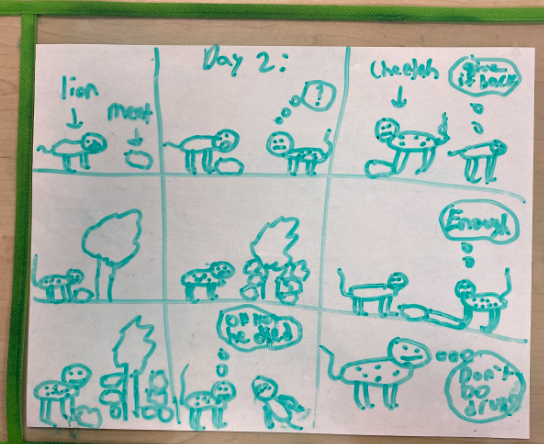 lion
meat
Day 2:
?
Cheetah
give
it back
Enough
oh no
he died
Don't
Do
drugs